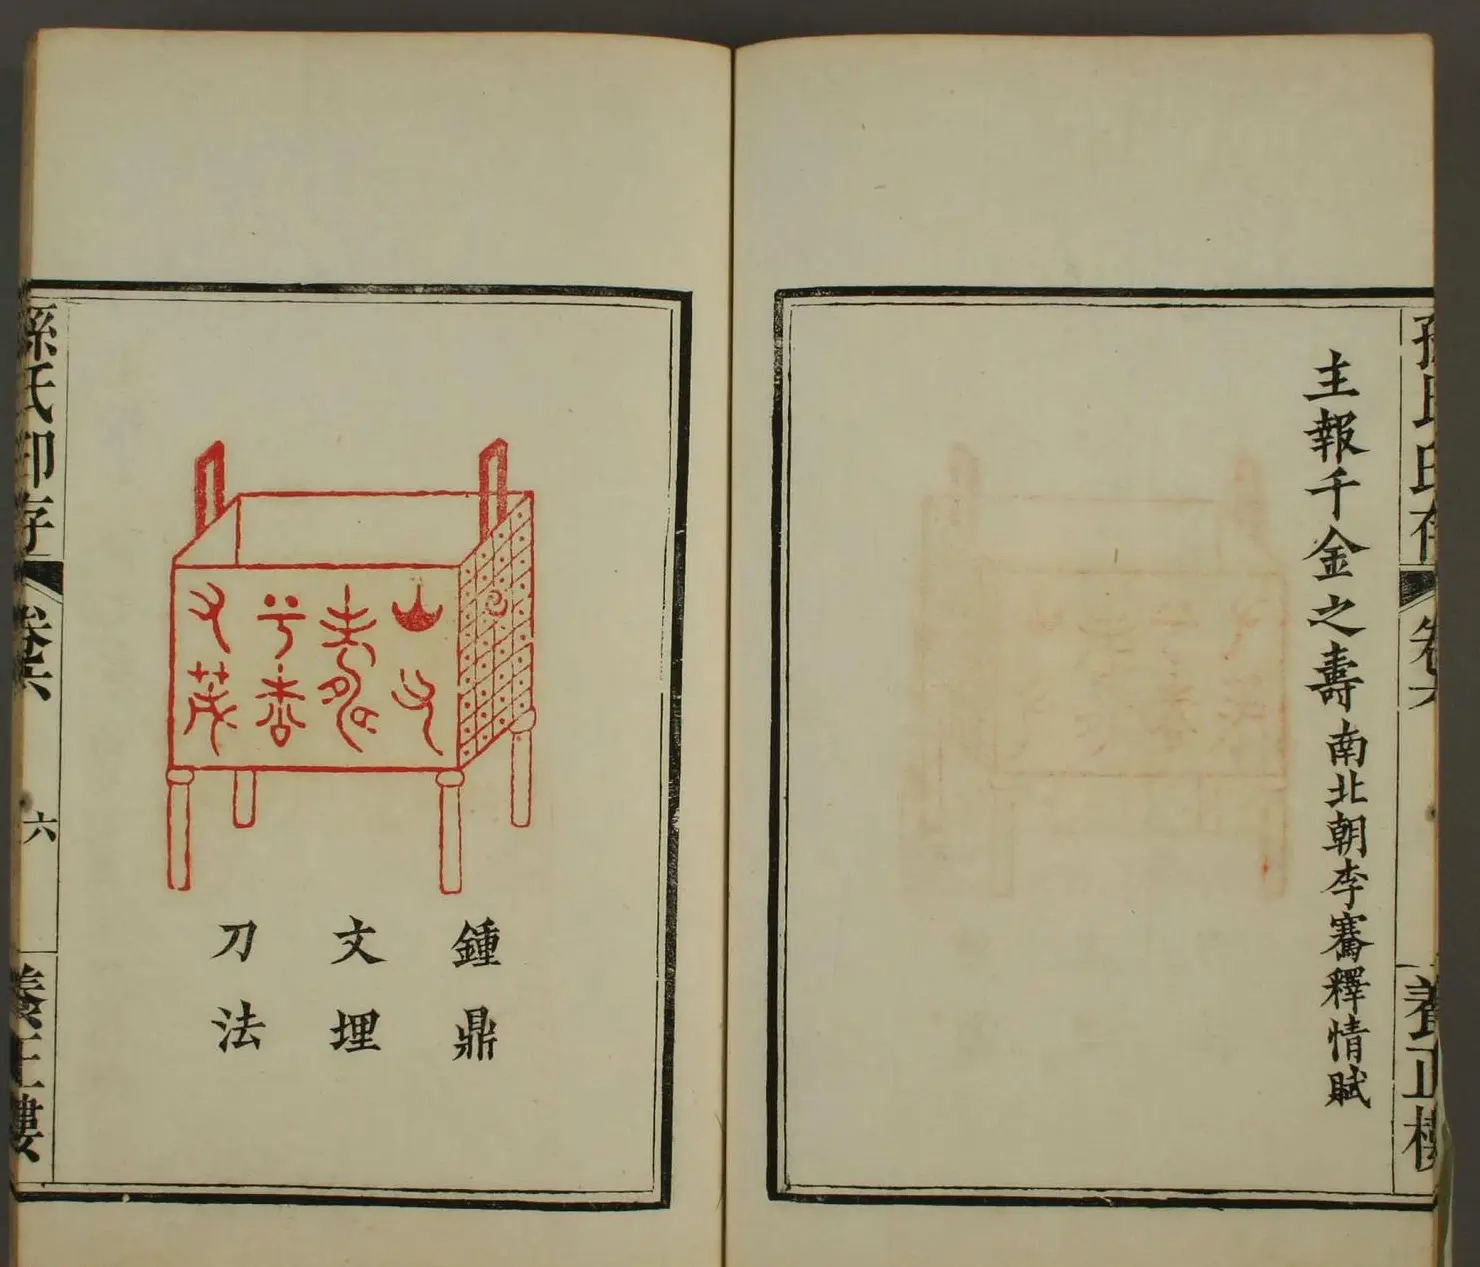 主報千金之壽南北朝李騫釋情賦
孫氏印存
卷六
養正樓
鍾鼎
文埋
刀法
孫氏印存
卷六
六
養正樓